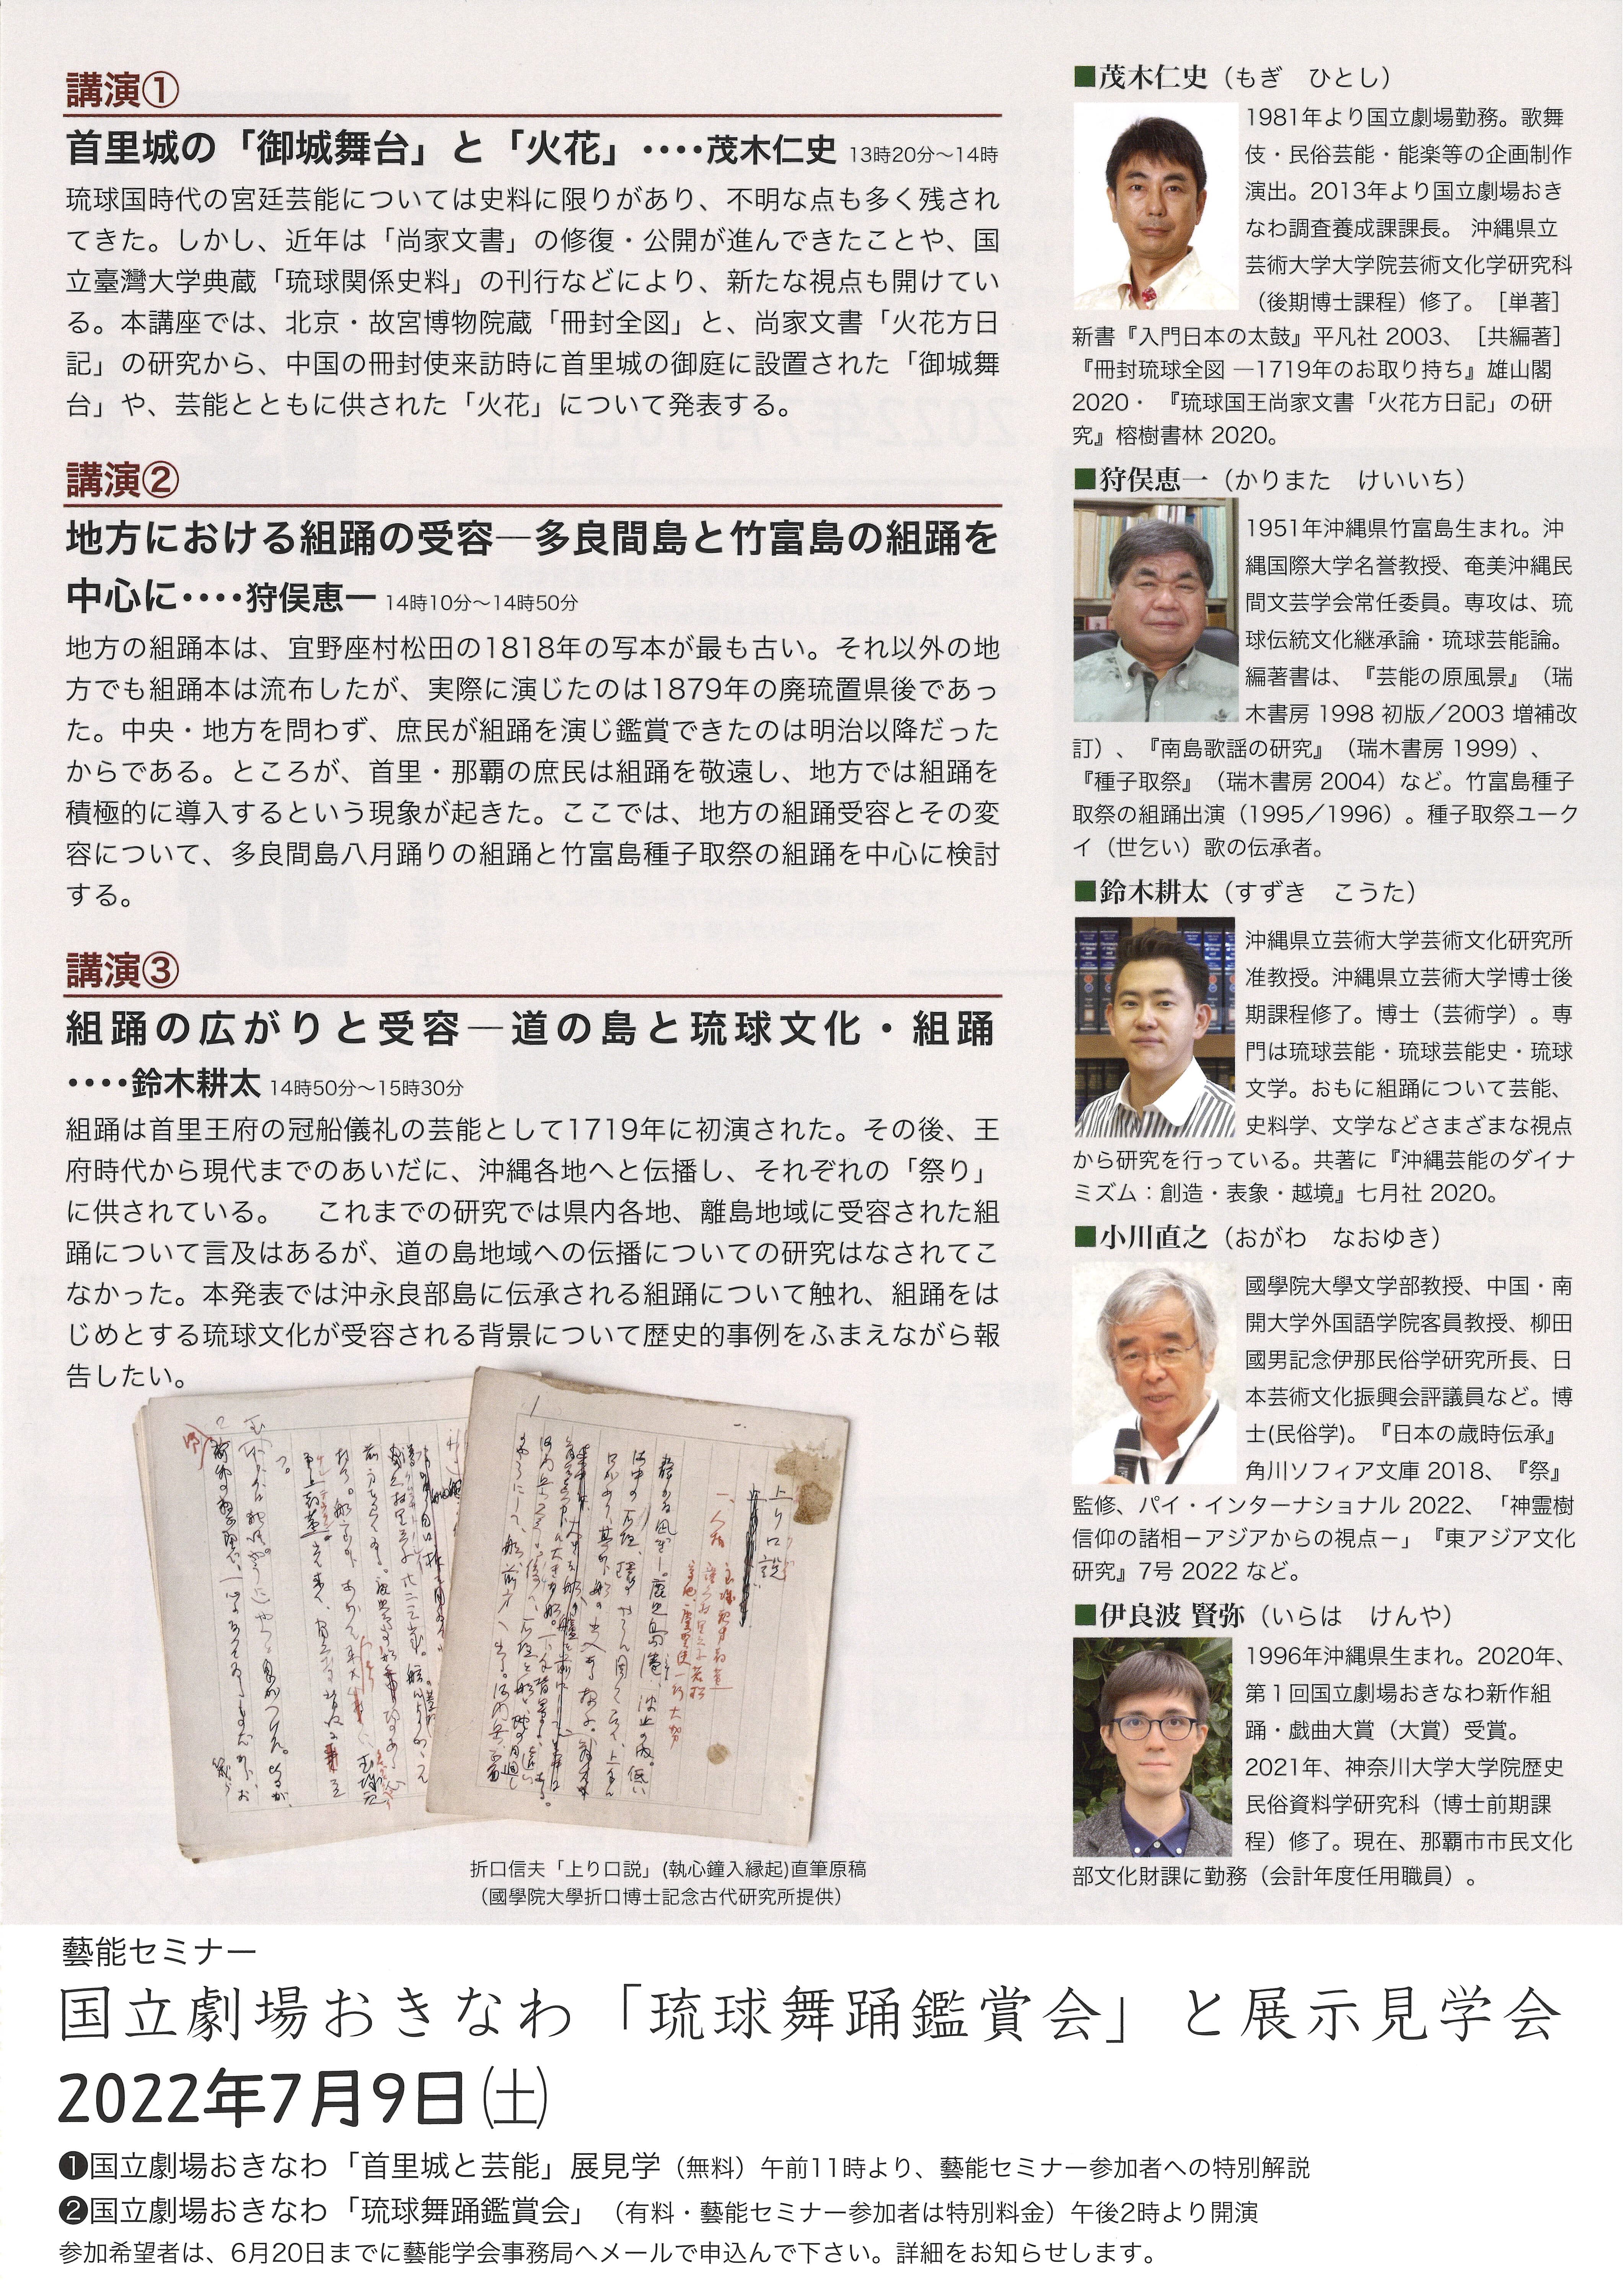 講演①
首里城の「御城舞台」と「火花」‥‥茂木仁史 13時20分〜14時
琉球国時代の宮廷芸能については史料に限りがあり、不明な点も多く残され
てきた。しかし、近年は「尚家文書」の修復・公開が進んできたことや、国
立臺灣大学典蔵「琉球関係史料」の刊行などにより、新たな視点も開けてい
る。本講座では、北京・故宮博物院蔵「冊封全図」と、尚家文書「火花方日
記」の研究から、中国の冊封使来訪時に首里城の御庭に設置された「御城舞
台」や、芸能とともに供された「火花」について発表する。
講演②
地方における組踊の受容―多良間島と竹富島の組踊を
中心に‥‥狩俣恵一 14時10分〜14時50分
地方の組踊本は、宜野座村松田の1818年の写本が最も古い。それ以外の地
方でも組踊本は流布したが、実際に演じたのは1879年の廃琉置県後であっ
た。中央・地方を問わず、庶民が組踊を演じ鑑賞できたのは明治以降だった
からである。ところが、首里・那覇の庶民は組踊を敬遠し、地方では組踊を
積極的に導入するという現象が起きた。ここでは、地方の組踊受容とその変
容について、多良間島八月踊りの組踊と竹富島種子取祭の組踊を中心に検討
する。
講演③
組踊の広がりと受容―道の島と琉球文化・組踊
‥‥鈴木耕太 14時50分〜15時30分
組踊は首里王府の冠船儀礼の芸能として1719年に初演された。その後、王
府時代から現代までのあいだに、沖縄各地へと伝播し、それぞれの「祭り」
に供されている。　これまでの研究では県内各地、離島地域に受容された組
踊について言及はあるが、道の島地域への伝播についての研究はなされてこ
なかった。本発表では沖永良部島に伝承される組踊について触れ、組踊をは
じめとする琉球文化が受容される背景について歴史的事例をふまえながら報
告したい。
上り口説
折口信夫「上り口説」(執心鐘入縁起)直筆原稿
（國學院大學折口博士記念古代研究所提供）
■茂木仁史（もぎ　ひとし）
1981年より国立劇場勤務。歌舞
伎・民俗芸能・能楽等の企画制作
演出。2013年より国立劇場おき
なわ調査養成課課長。 沖縄県立
芸術大学大学院芸術文化学研究科
（後期博士課程）修了。［単著］
新書『入門日本の太鼓』平凡社 2003、［共編著］
『冊封琉球全図 ―1719年のお取り持ち』雄山閣
2020・ 『琉球国王尚家文書「火花方日記」の研
究』榕樹書林 2020。
■狩俣恵一（かりまた　けいいち）
1951年沖縄県竹富島生まれ。沖
縄国際大学名誉教授、奄美沖縄民
間文芸学会常任委員。専攻は、琉
球伝統文化継承論・琉球芸能論。
編著書は、『芸能の原風景』（瑞
木書房 1998 初版／2003 増補改
訂）、『南島歌謡の研究』（瑞木書房 1999）、
『種子取祭』（瑞木書房 2004）など。竹富島種子
取祭の組踊出演（1995／1996）。種子取祭ユーク
イ（世乞い）歌の伝承者。
■鈴木耕太（すずき　こうた）
沖縄県立芸術大学芸術文化研究所
准教授。沖縄県立芸術大学博士後
期課程修了。博士（芸術学）。専
門は琉球芸能・琉球芸能史・琉球
文学。おもに組踊について芸能、
史料学、文学などさまざまな視点
から研究を行っている。共著に『沖縄芸能のダイナ
ミズム：創造・表象・越境』七月社 2020。
■小川直之（おがわ　なおゆき）
國學院大學文学部教授、中国・南
開大学外国語学院客員教授、柳田
國男記念伊那民俗学研究所長、日
本芸術文化振興会評議員など。博
士(民俗学)。『日本の歳時伝承』
角川ソフィア文庫 2018、『祭』
監修、パイ・インターナショナル 2022、「神霊樹
信仰の諸相－アジアからの視点－」『東アジア文化
研究』7号 2022 など。
■伊良波 賢弥（いらは　けんや）
1996年沖縄県生まれ。2020年、
第１回国立劇場おきなわ新作組
踊・戯曲大賞（大賞）受賞。
2021年、神奈川大学大学院歴史
民俗資料学研究科（博士前期課
程）修了。現在、那覇市市民文化
部文化財課に勤務（会計年度任用職員）。
藝能セミナー
国立劇場おきなわ「琉球舞踊鑑賞会」と展示見学会
2022年7月9日㈯
❶国立劇場おきなわ「首里城と芸能」展見学（無料）午前11時より、藝能セミナー参加者への特別解説
❷国立劇場おきなわ「琉球舞踊鑑賞会」（有料・藝能セミナー参加者は特別料金）午後2時より開演
参加希望者は、6月20日までに藝能学会事務局へメールで申込んで下さい。詳細をお知らせします。